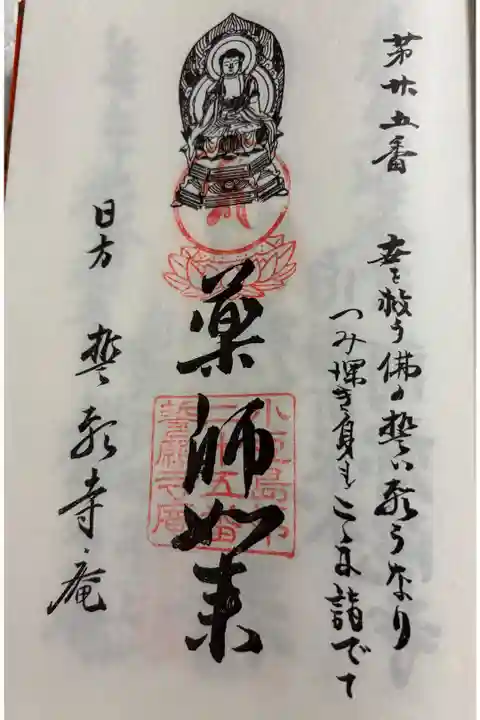 第廿五番
世を救う佛の誓い願うなり
つみ深き身もこゝに詣でて
薬師如来
小豆島第
二十五番
誓願寺庵
日方 誓願寺庵